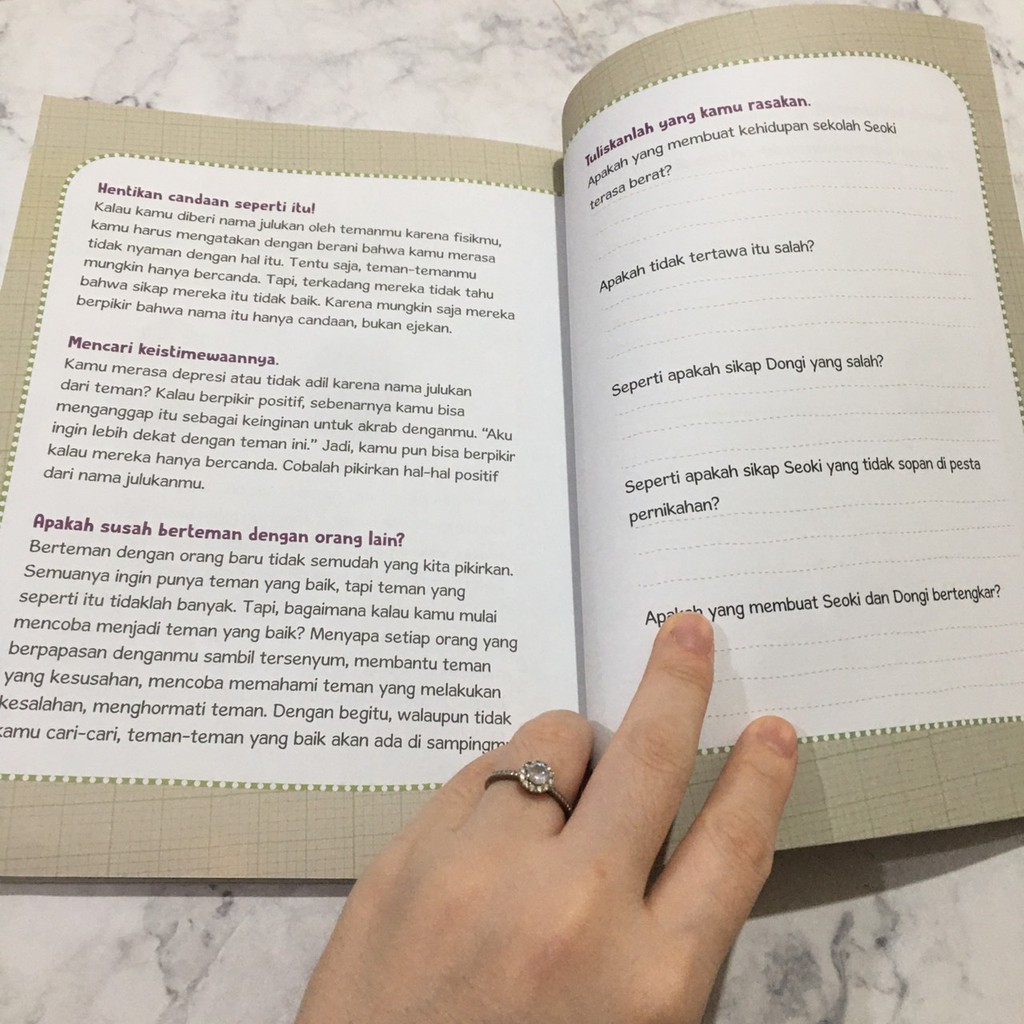 Hentikan candaan seperti itu!
Kalau kamu diberi nama julukan oleh temanmu karena fisikmu,
kamu harus mengatakan dengan berani bahwa kamu merasa
tidak nyaman dengan hal itu. Tentu saja, teman-temanmu
mungkin hanya bercanda. Tapi, terkadang mereka tidak tahu
bahwa sikap mereka itu tidak baik. Karena mungkin saja mereka
berpikir bahwa nama itu hanya candaan, bukan ejekan.
Mencari keistimewaannya.
Kamu merasa depresi atau tidak adil karena nama julukan
dari teman? Kalau berpikir positif, sebenarnya kamu bisa
menganggap itu sebagai keinginan untuk akrab denganmu. “Aku
ingin lebih dekat dengan teman ini.” Jadi, kamu pun bisa berpikir
kalau mereka hanya bercanda. Cobalah pikirkan hal-hal positif
dari nama julukanmu.
Apakah susah berteman dengan orang lain?
Berteman dengan orang baru tidak semudah yang kita pikirkan.
Semuanya ingin punya teman yang baik, tapi teman yang
seperti itu tidaklah banyak. Tapi, bagaimana kalau kamu mulai
mencoba menjadi teman yang baik? Menyapa setiap orang yang
berpapasan denganmu sambil tersenyum, membantu teman
yang kesusahan, mencoba memahami teman yang melakukan
kesalahan, menghormati teman. Dengan begitu, walaupun tidak
kamu cari-cari, teman-teman yang baik akan ada di
Tuliskanlah yang kamu rasakan.
Apakah yang membuat kehidupan sekolah Seoki
terasa berat?
Apakah tidak tertawa itu salah?
Seperti apakah sikap Dongi yang salah?
Seperti apakah sikap Seoki yang tidak sopan di pesta
pernikahan?
Apakah yang membuat Seoki dan Dongi bertengkar?